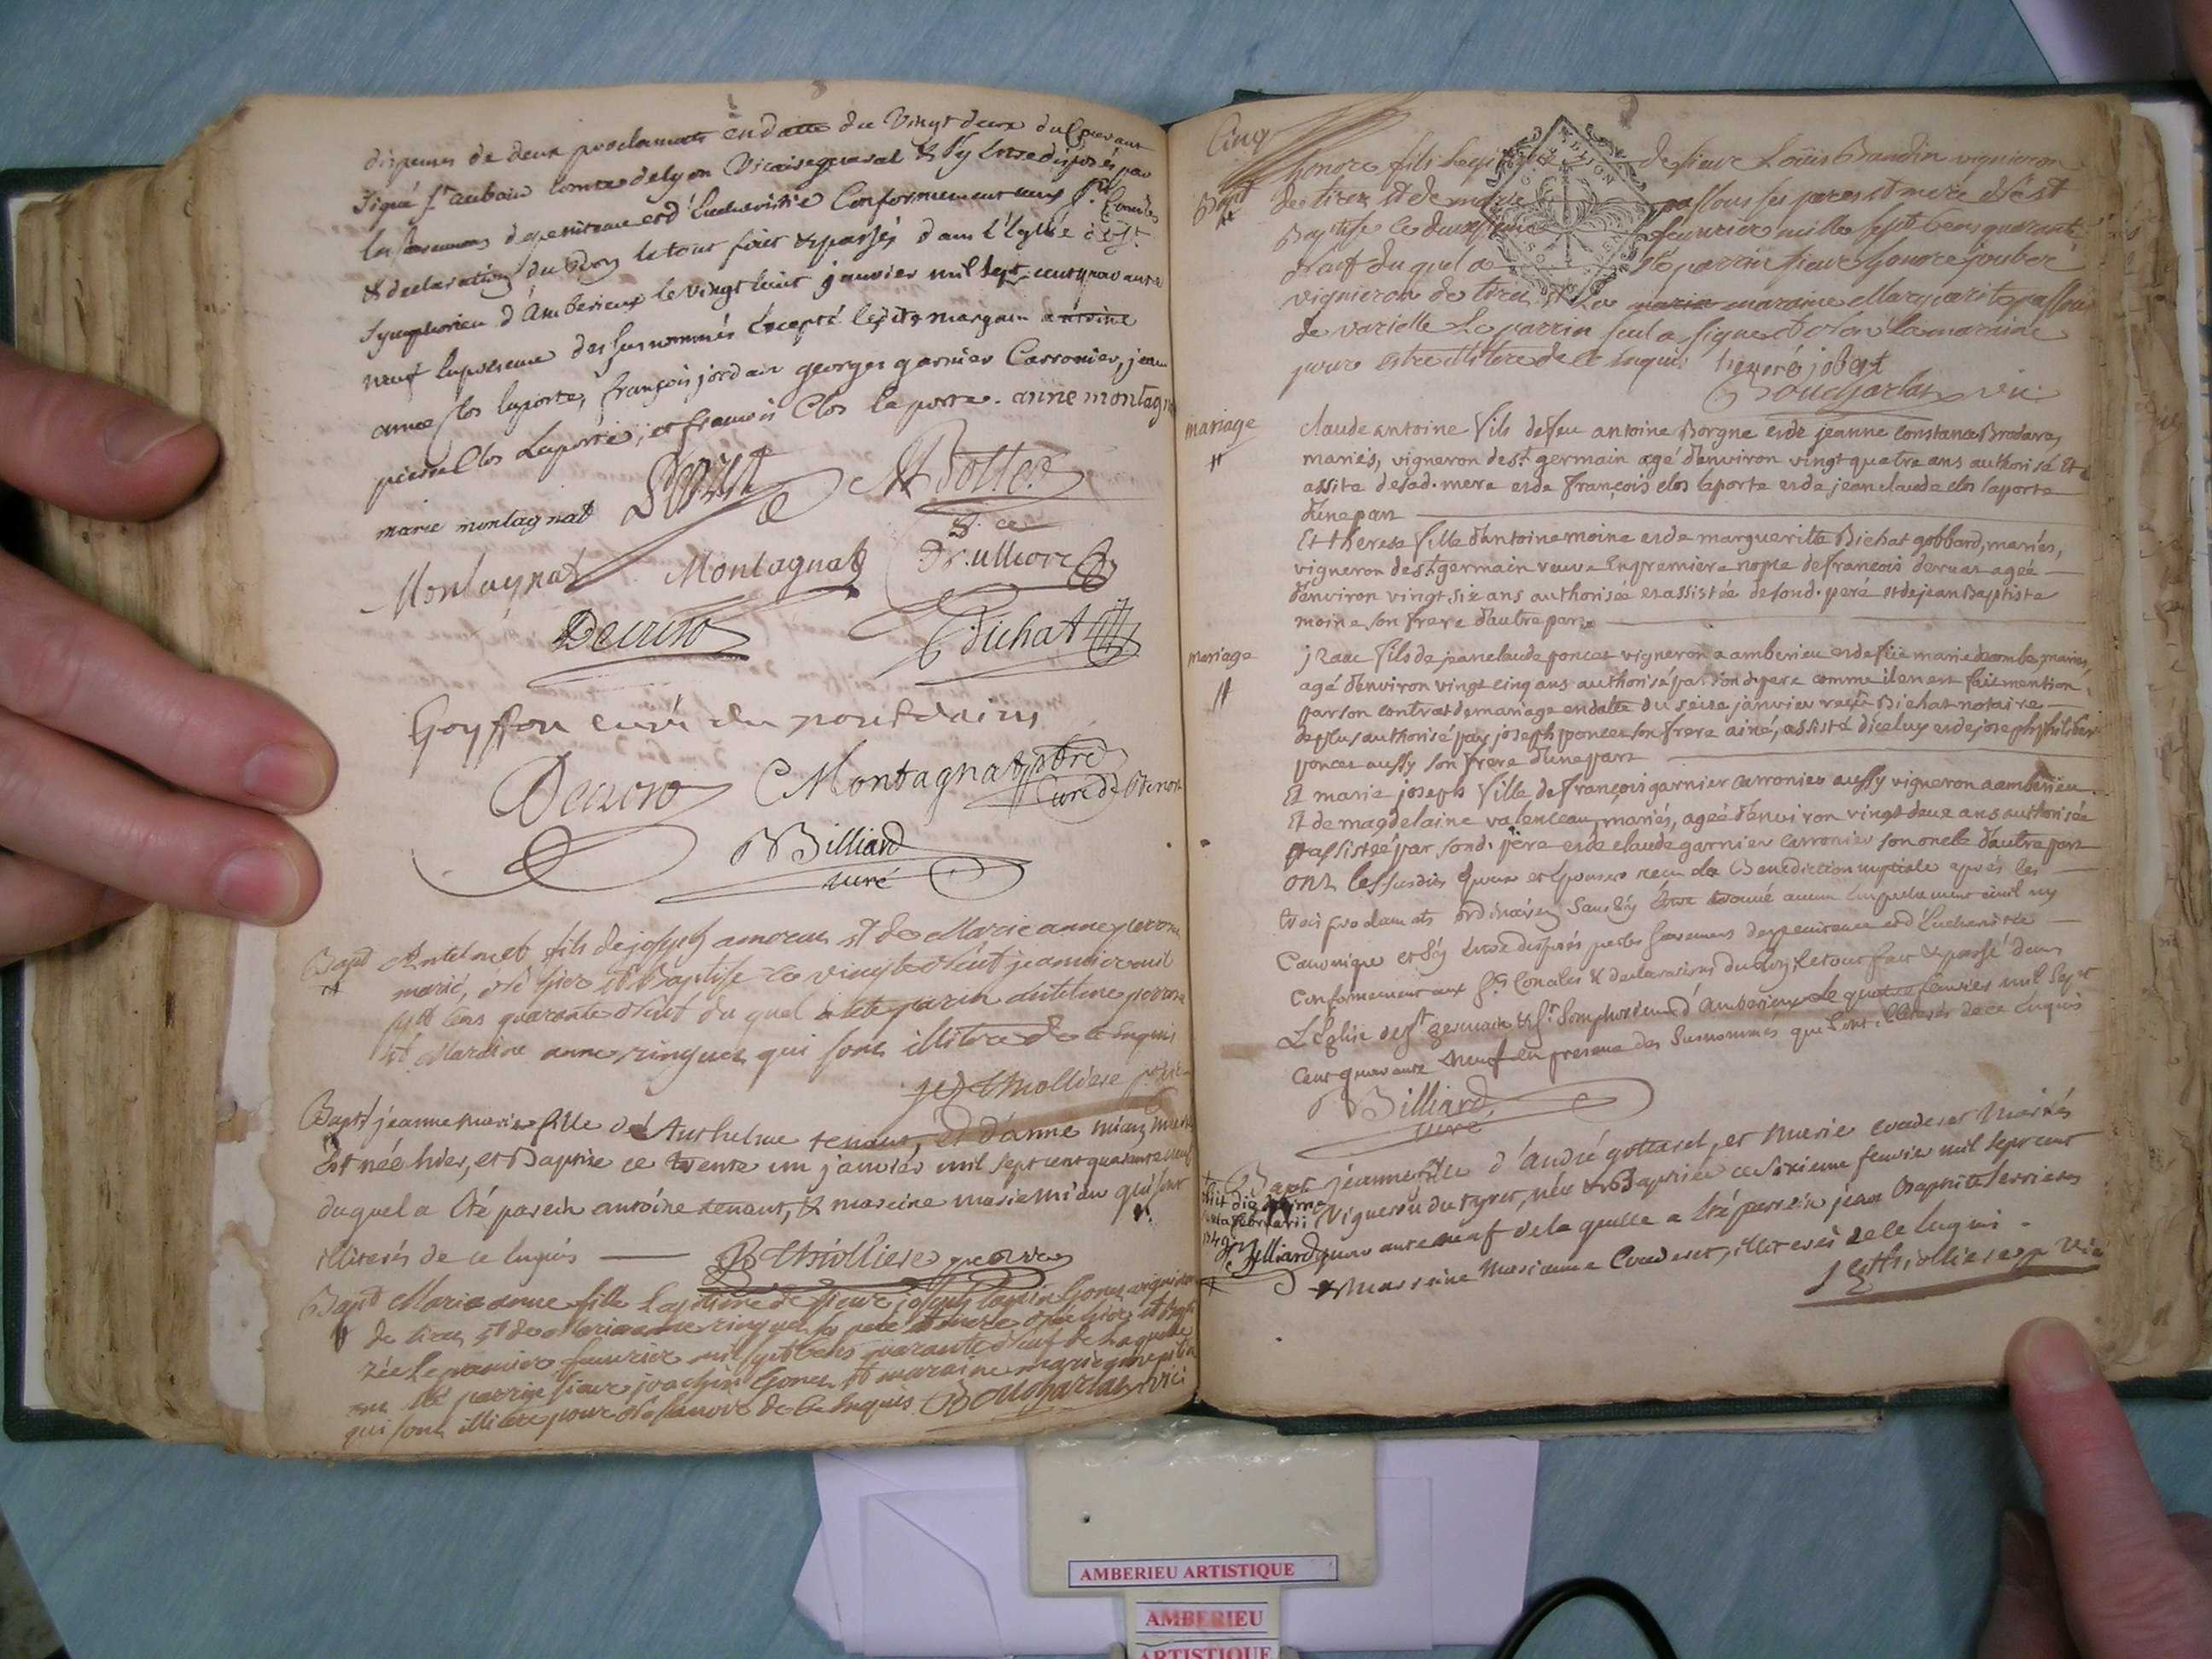 dispenses de deux proclamats en datte du vingt deux du Courant
signé st aubain comte de lyon Vicaire general & sy estre disposés par
les sacremens de penitence et d'Eucharistie Conformement aux
& declarations du Roy le tout fait & passés dans l'Eglise de st
Symphorien d'Amberieux le vingt huit janvier mil sept cent quarante
neuf en presence des susnommés excepté antoine
anne Clos laporte, françois jordain georges garnier Carronier, jean
pierre Clos Laporte, et francois Clos laporte. anne montagnat
marie montagnat
Montagnat Montagnat
Decroso Bichat
Goyffon curé du pont dains
Decroso Montagnat ptre
curé de
Billiard
curé
Bapt Antelme fils de joseph et de Marie anne perron
marié, né hier et Baptise ce vingte neuf jeanvier mil
sept cens quarante neuf du quel a été parin antelme perron
et Maraine anne ringuet qui sont illitere de ce enquis
Thiolliere
Bapt jeanne marie fille de Anthelme tenant, et d'anne mariés
Est née hier, et Baptisé ce trente un janvier mil sept cent quarante neuf
duquel a été parein antoine tenant, & mareine marie qui sont
illiterés de ce enquis Thiolliere
Bapt Marie anne fille Legitime de sieur joseph Gonet vigniron
de tiret et de marianne ringuet ses pere et mere née hier et bapti
zée le premier feuvrier mil sept cens quarante neuf de laquelle
ete parrin sieur joachin Gonet et maraine marie
qui sont illitere pour de ce enquis vici
Cinq
Bapt honore fils legi de sieur Loüis Baudin vignieron
de tiret et de marie passous ses peres et mere né est
Baptise ce deuxsieme feuvrier mille sept cens quarante
neuf duquel a le parrin sieur honore joubert
vignieron de tiret et La marie maraine Margarite passous
de varielle Le parrin seul a signe et non la maraine
pour estre illitere de ce enquis honnoré jobert
vic
mariage claude antoine fils de feu antoine Borgne et de jeanne constance Brodares,
mariés, vigneron de st germain agé d'environ vingt quatre ans authorisé et
assité de sad. mere et de françois clos laporte et de jean claude clos laporte
d'une part
Et therese fille d'antoine moine et de marguerite Bichat gobbard, mariés,
vigneron de st germain veuve en premiere nopce de francois dervas ageé
d'environ vingt six ans authorisée et assistée de sond. peré et de jean baptiste
moine son frere d'autre part
mariage jzaac fils de jean claude poncet vigneron a amberieu et de feüe marie decombe, mariés,
agé d'environ vingt cinq ans authorisé par sond. pere comme il en est fait mention
par son contrat de mariage en datte du seize janvier reçu Bichat notaire
de plus authorisé par joseph poncet son frere ainé, assisté d'iceluy et de joseph philibert
poncet aussy son frere d'une part
Et marie joseph fille de françois garnier carronier aussy vigneron a amberieu
Et de magdelaine valenceau, mariés, ageé d'environ vingt deux ans authorisée
et assistée par sond. pere et de claude garnier carronier son oncle d'autre part
ont les susdits Epoux et Epouses reçu la Benediction nuptiale après les
trois proclamats ordinaires sans s'y être trouvé aucun empechement civil ny
Canonique et s'y etre disposés par les sacremens de penitence et d'Eucharistie
conformement aux sts Conciles & declarations du Roy, le tout fait & passé dans
L'Eglise de st germain & st Simphorien d'Amberieux le quatre fevrier mil sept
cent quarante neuf en presence des susnommés qui sont illiterés de ce enquis
Billiard
curé
Bapt jeanne fille d'andré gottard, et marie couderet mariés
vigneron du tyret, née & Baptisée ce sixieme fevrier mil sept cent
quarante neuf de la quelle a été parrein jean Baptiste
& marreine Marianne Couderet, illiterés de ce Enquis.
Thiolliere vic
februarii
1749
Billiard
AMBERIEU ARTISTIQUE
AMBERIEU
ARTISTIQUE